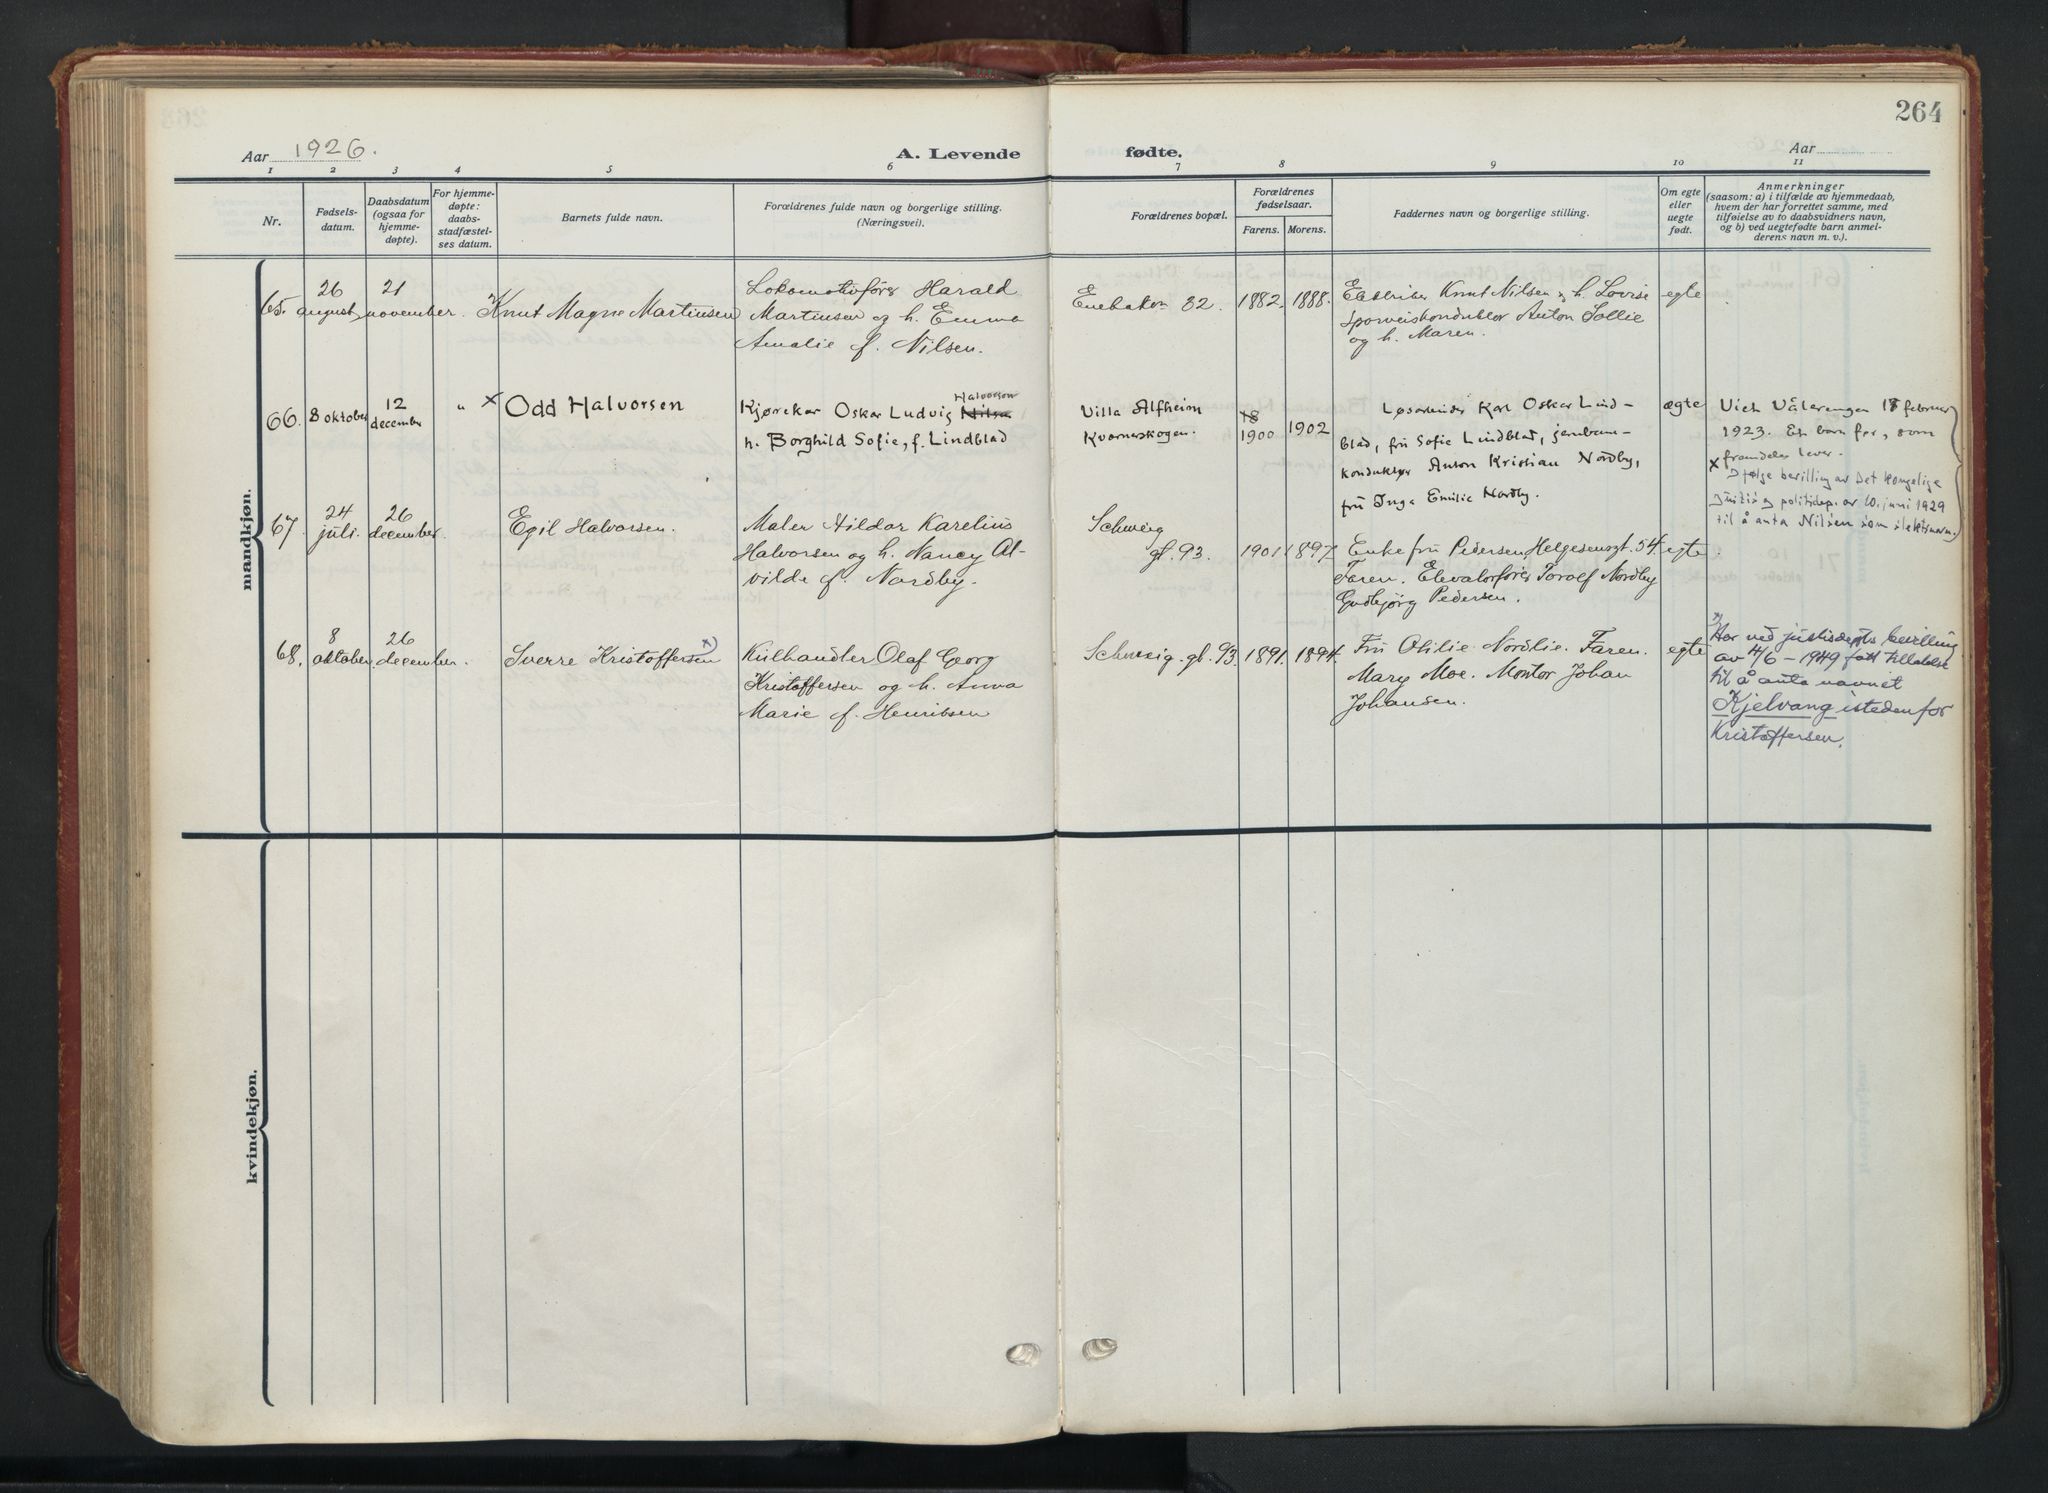 264
Aar 1926.
A. Levende
fødte.
Aar
1 2 3 4 5 6 7 8 9 10 11
Nr.
Fødsels-
datum.
Daabsdatum
(ogsaa for
hjemme-
døpte).
For hjemme-
døpte:
daabs-
stadfæstel-
ses datum.
Barnets fulde navn.
Forældrenes fulde navn og borgerlige stilling.
(Næringsvei).
Forældrenes bopæl.
Forældrenes
fødselsaar.
Farens. Morens.
Faddernes navn og borgerlige stilling.
Om egte
eller
uegte
født.
Anmerkninger
(saasom: a) i tilfælde av hjemmedaab,
hvem der har forrettet samme, med
tilføielse av to daabsvidners navn,
og b) ved uegtefødte barn anmel-
derens navn m. v.).
mandkjøn.
65.
26
august
21
november.
Knut Magne Martinsen
Lokomotivfører Harald
Martinsen og h. Emma
Amalie f. Nilsen.
Enebakv 32.
1882. 1888.
Elektriker Knut Nilsen og h. Lovise
Sporveiskonduktør Anton Sollie
og h. Maren.
egte
66.
8 oktober
12
december
"
x Odd Halvorsen
Halvorsen
Kjørekar Oskar Ludvig Nilsen
h. Borghild Sofie, f. Lindblad
Villa Alfheim
Kværnerskogen.
18
1900
1902
Løsarbeider Karl Oskar Lind-
blad, fru Sofie Lindblad, jernbane-
konduktør Anton Kristian Nordby,
fru Inga Emilie Nordby.
ægte
Viet Vålerengen 17 februar
1923. Et barn før, som
fremdeles lever.
x Ifølge bevilling av Det kongelige
Justis og politidep. av 10. juni 1929
til å anta Nilsen som slektsnavn.
67.
24
juli.
26
december.
Egil Halvorsen.
Maler Hildar Karelius
Halvorsen og h. Nancy Al-
vilde f. Nordby.
Schweig
gt. 93.
1901 1897
Enkefru Pedersen Helgesensgt. 54
Faren. Elevatorfører Torolf Nordby
Gudbjørg Pedersen.
egte.
68.
8
oktober.
26
december.
Sverre Kristoffersen x)
Kulhandler Olaf Georg
Kristoffersen og h. Anna
Marie f. Henriksen
Schweig. gt. 93.
1891. 1894.
Fru Otilie Nordlie. Faren.
Mary Moe. Montør Johan
Johansen.
egte
x) Har ved justisdepts bevilling
av 4/6 - 1949 fått tillatelse
til å anta navnet
Kjelvang istedenfor
Kristoffersen.
kvindekjøn.